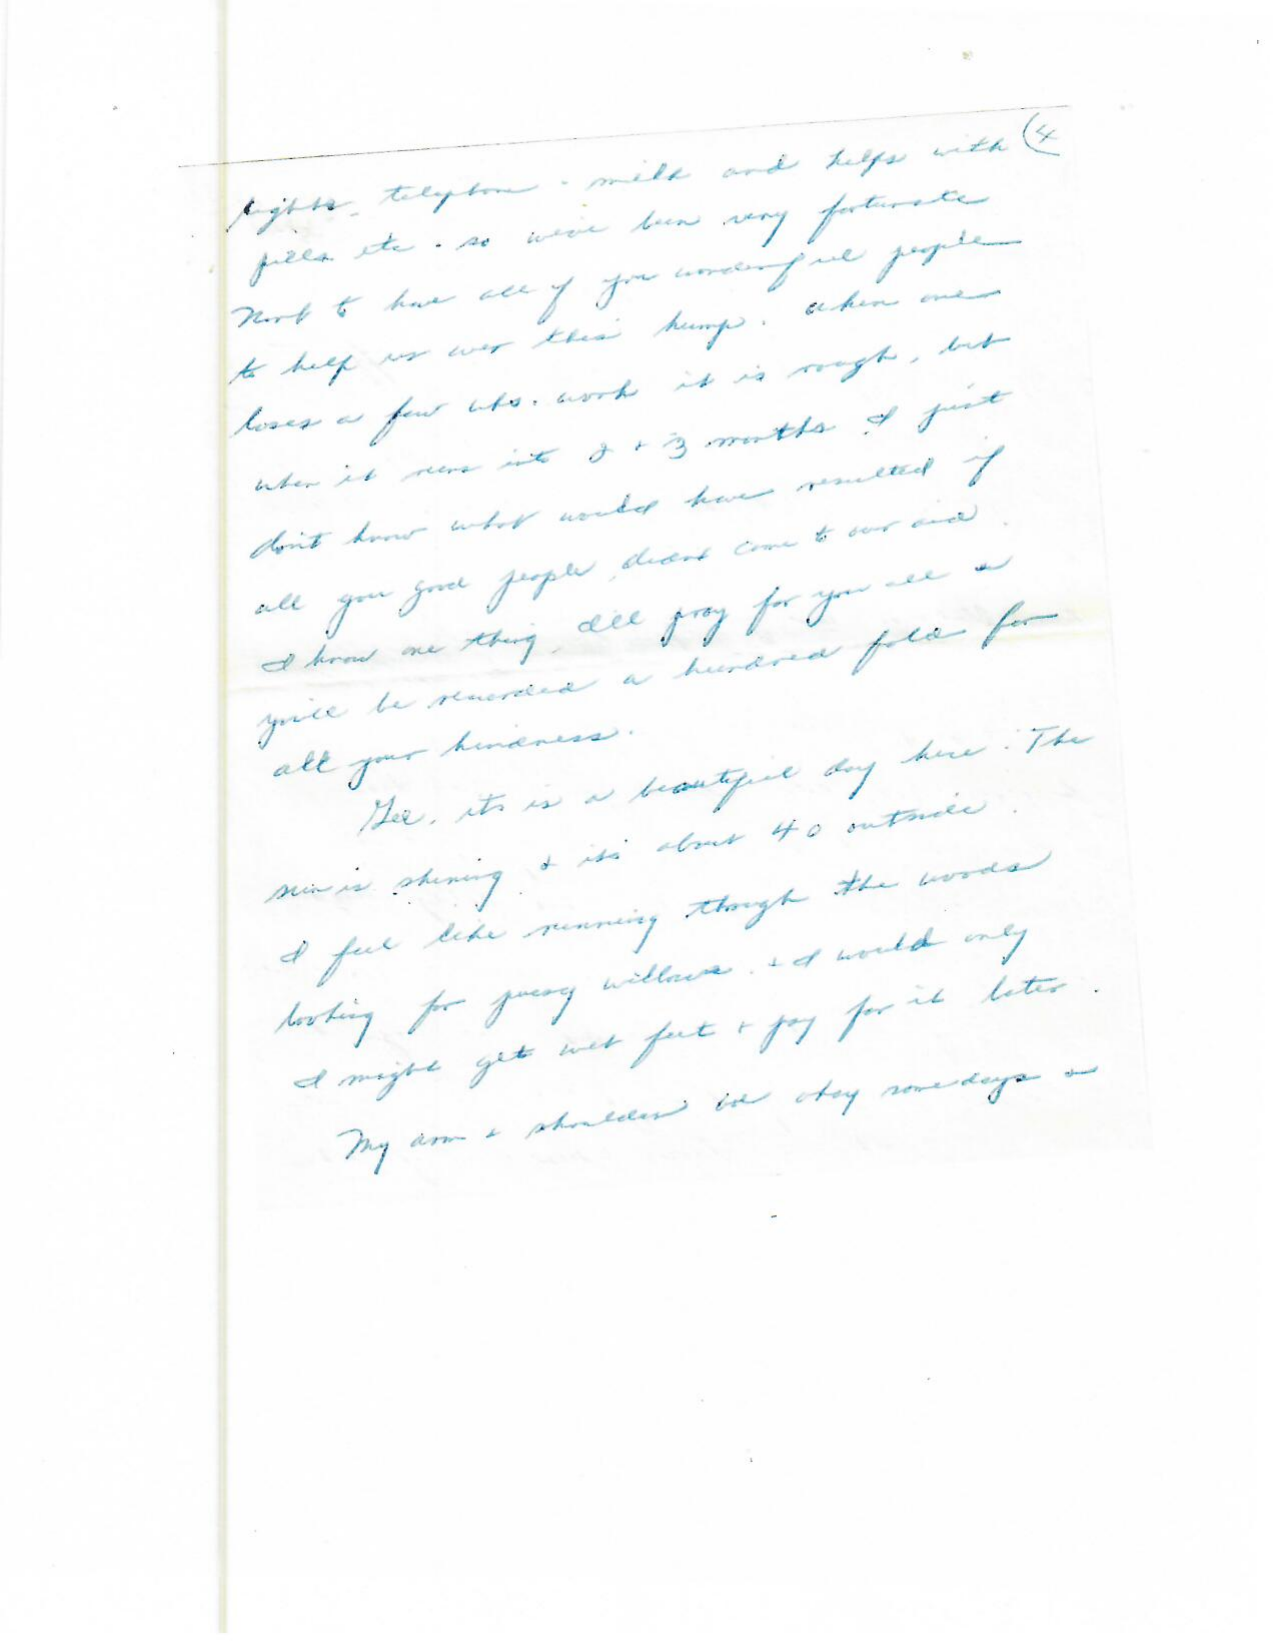 (4
lights, telephone - milk and helps with
pills etc. so we've been very fortunate
to have all of you wonderful people
to help us over this hump. When one
loses a few wks. work it is rough, but
when it runs into 2 + 3 months I just
don't know what would have resulted if
all you good people didnt come to our aid.
I know one thing, I'll pray for you all &
you'll be rewarded a hundred fold for
all your kindness.
Gee, its is a beautiful day here. The
sun is shining & its about 40 outside.
I feel like running though the woods
looking for pussy willows. & I would only
I might get wet feet + pay for it later.
My arm & shoulder okay some days &